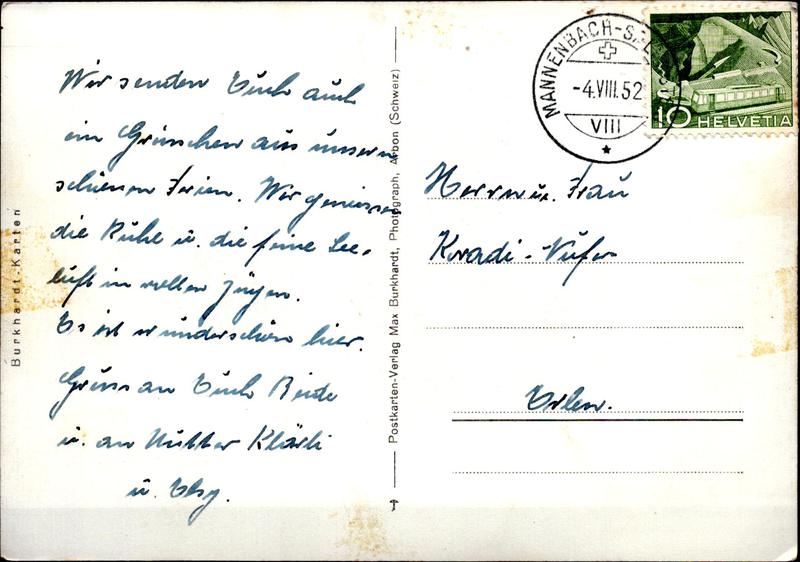 Wir senden Euch auch
ein Grüsschen aus unsern
schönen Ferien. Wir geniessen
die Ruhe u. die feine See-
luft in vollen Zügen.
Es ist wunderschön hier.
Gruss an Euch Beide
u. an Mutter Klärli
u. Elsy.
Burkhardt-Karten
Postkarten-Verlag Max Burkhardt, Photograph, Arbon (Schweiz)
MANNENBACH-S
-4.VIII.52
VIII
10 HELVETIA
Herrn u. Frau
Kradi-Nufer
Erlen.